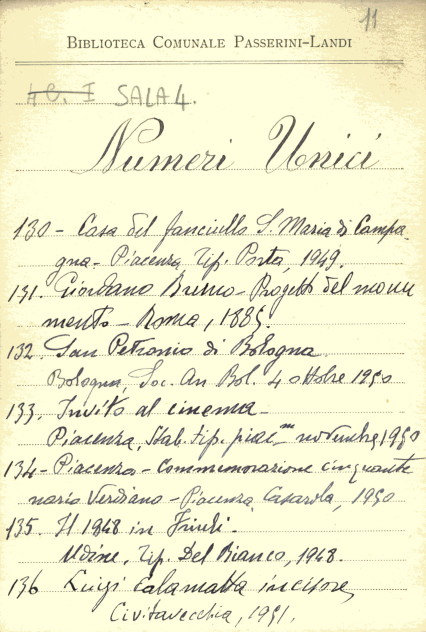 11
BIBLIOTECA COMUNALE PASSERINI-LANDI
SALA 4.
Numeri Unici
130 - Casa del fanciullo S. Maria di Campa
gna - Piacenza Tip. Porta, 1949.
131. Giordano Bruno - Progetto del monu
mento - Roma, 1885.
132. San Petronio di Bologna
Bologna, Soc. An. Bol. 4 ottobre 1950
133. Invito al cinema -
Piacenza, Stab. tip. novembre, 1950
134 - Piacenza - Commemorazione cinquante
nario Verdiano - Piacenza, Casarola, 1950
135. Il 1848 in Friuli -
Udine, Tip. Del Bianco, 1948.
136 Luigi Calamatta incisore,
Civitavecchia, 1951.